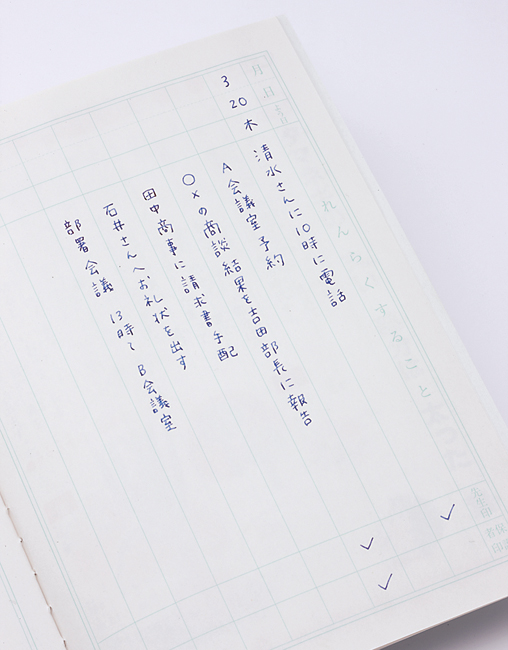 月 日
れんらくすること
先生印
3 20 木
清水さんに10時に電話
A会議室予約
○×の商談結果を吉田部長に報告
田中商事に請求書手配
石井さんへお礼状を出す
部署会議 13時〜 B会議室